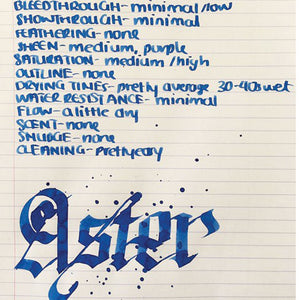 BLEEDTHROUGH- minimal/low
SHOWTHROUGH- minimal
FEATHERING- none
SHEEN- medium, purple
SATURATION- medium/high
OUTLINE- none
DRYING TIMES- pretty average 30-40s wet
WATER RESISTANCE- minimal
FLOW- a little dry
SCENT- none
SMUDGE- none
CLEANING- pretty easy
Aster